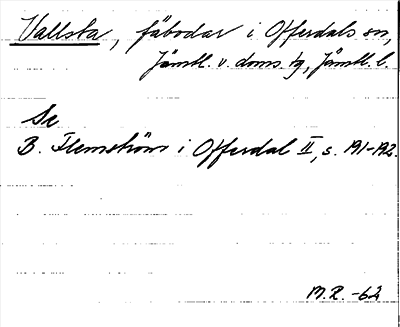 Vallsta, fäbodar i Offerdals sn,
Jämtl. v. doms. tg, Jämtl. l.
Se
B. Flemström i Offerdal II, s. 191-192.
M.R. -62